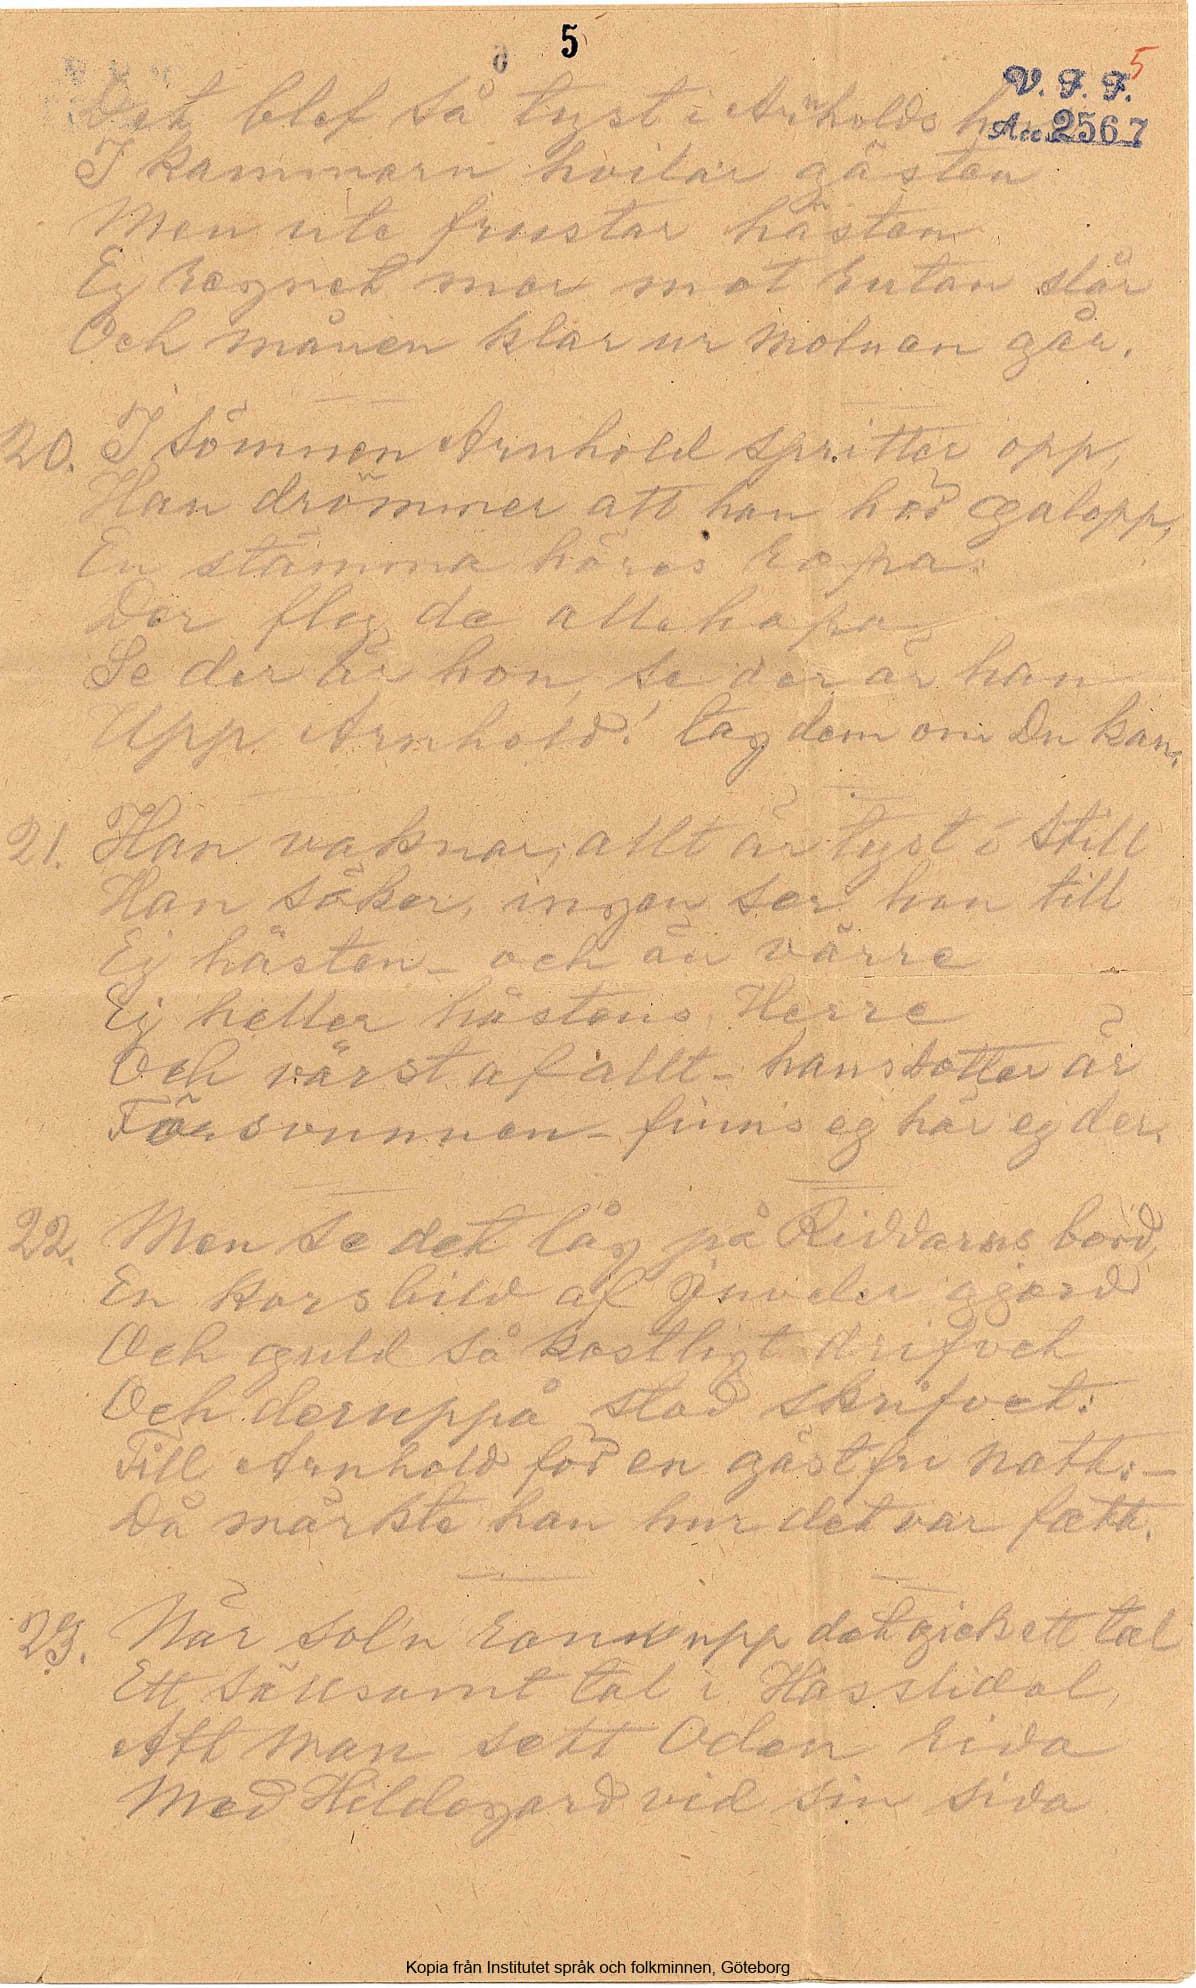 5
5
V. F. F.
Acc. 2567
Det blef så tyst i Arnholds
I kammarn hvilar gästen
Men ute frustar hästen
Ej regnet mer mot rutan slår
Och månen klar ur molnen går.
20. I sömnen Arnhold spritter opp,
Han drömmer att han hör galopp,
En stämma höres ropa:
Der flyg de allihopa
Se der är hon, se der är han
Upp Arnhold! tag dem om Du kan.
21. Han vaknar, allt är tyst o still
Han söker, ingen ser han till
Ej hästen – och än värre
Ej heller hästens Herre
Och värst af allt – hans dotter är
Försvunnen – finns ej här ej der.
22. Men se det låg på Riddarns bord,
En korsbild af juveler gjord
Och guld så kostligt drifvet
Och deruppå stod skrifvet:
Till Arnhold för en gästfri natt: –
Då märkte han hur det var fatt.
23. När sol'n rann upp det gick ett tal
Ett sällsamt tal i Hasslidal,
Att man sett Oden rida
Med Hildegard vid sin sida
Kopia från Institutet språk och folkminnen, Göteborg